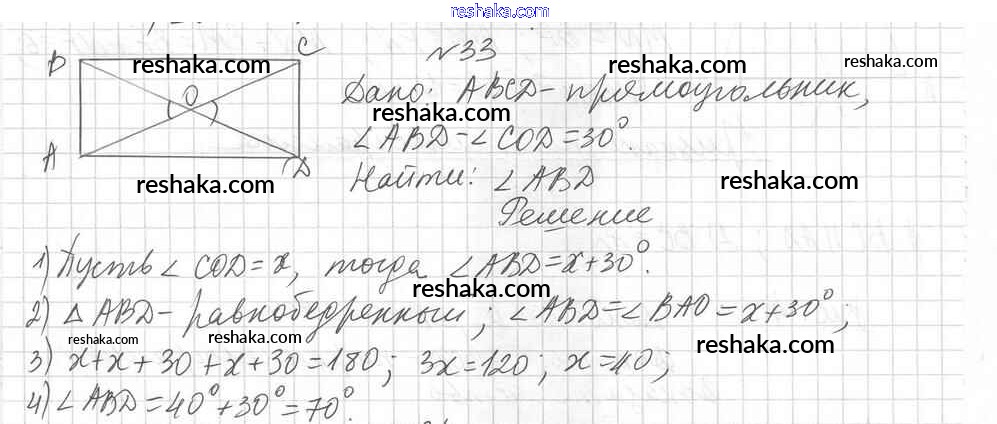 reshaka.com
№33
B C
reshaka.com reshaka.com reshaka.com
Дано: ABCD - прямоугольник,
O
reshaka.com
∠ABD - ∠COD = 30°.
A D
Найти: ∠ABD
reshaka.com reshaka.com
Решение
1) Пусть ∠COD = x, тогда ∠ABD = x + 30°.
reshaka.com
2) △ABD - равнобедренный; ∠ABD = ∠BAO = x + 30°;
reshaka.com reshaka.com reshaka.com
3) x + x + 30 + x + 30 = 180; 3x = 120; x = 40;
4) ∠ABD = 40° + 30° = 70°.